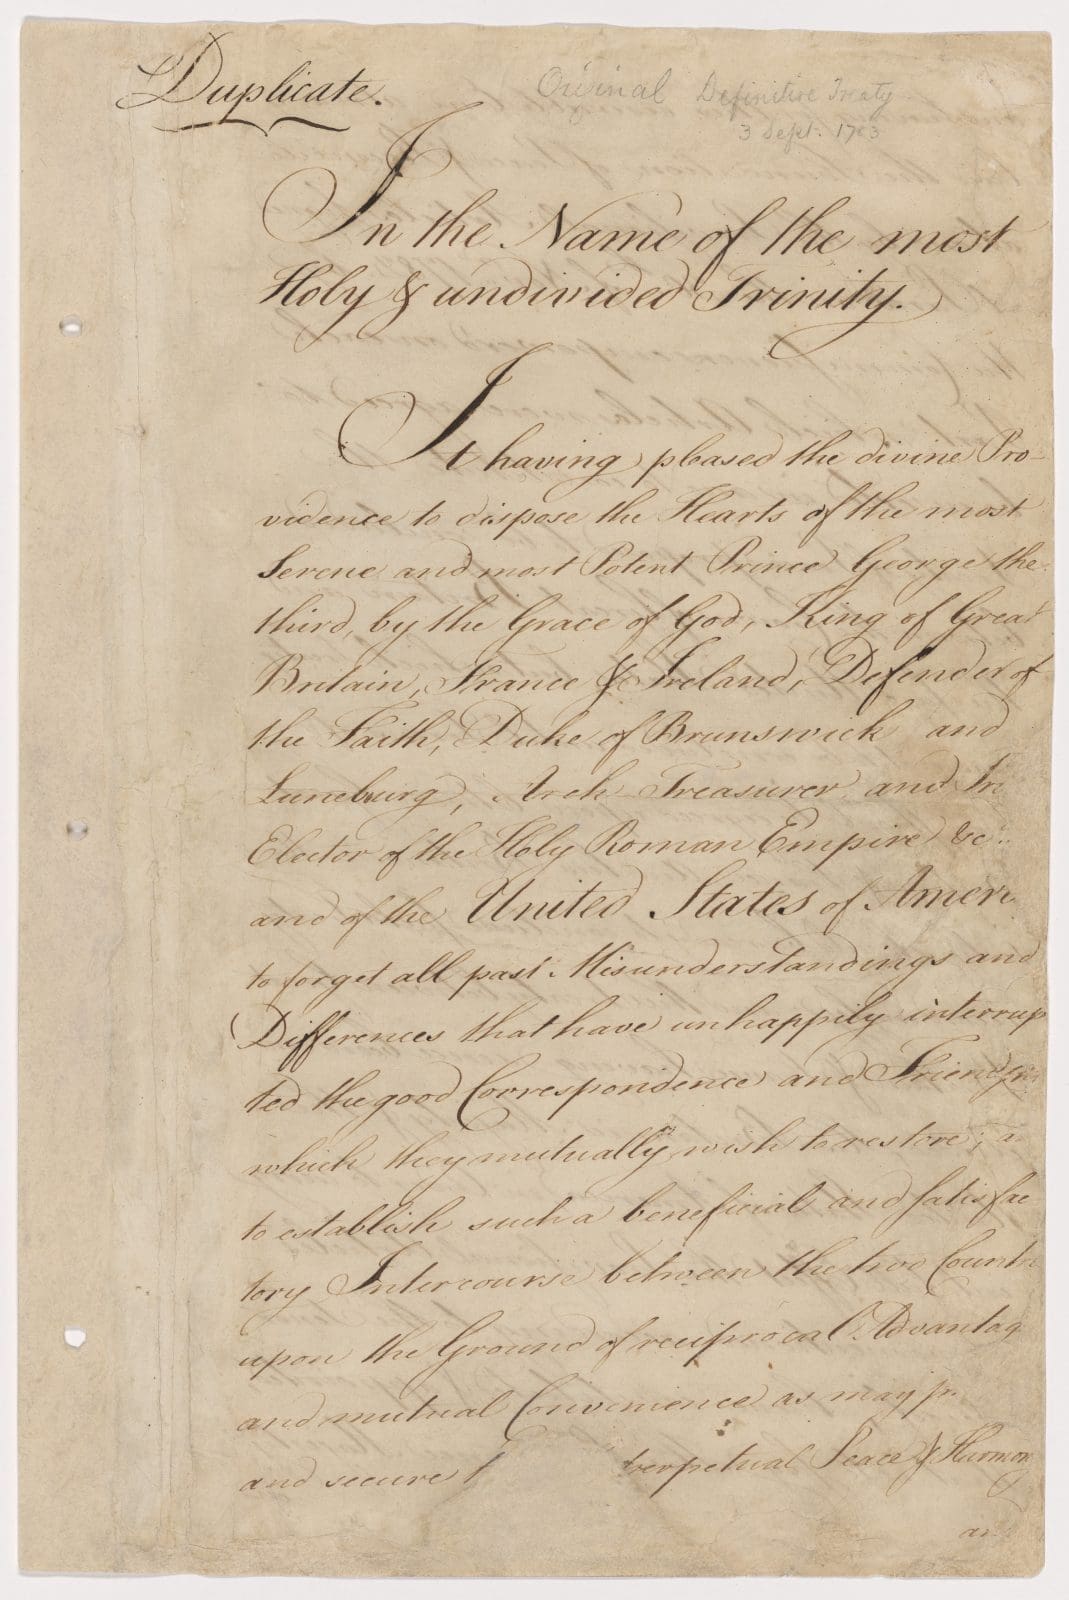 Duplicate.
Original Definitive Treaty
3 Sept. 1783
In the Name of the most
Holy & undivided Trinity.
It having pleased the divine Pro-
vidence to dispose the Hearts of the most
Serene and most Potent Prince George the
third, by the Grace of God, King of Great
Britain, France & Ireland, Defender of
the Faith, Duke of Brunswick and
Luneburg, Arch Treasurer, and
Elector of the Holy Roman Empire &c.
and of the United States of Ameri
to forget all past Misunderstandings and
Differences that have unhappily interrup
ted the good Correspondence and Friendship
which they mutually wish to restore; a
to establish such a beneficial and satisfac
tory Intercourse between the two Countri
upon the Ground of reciprocal Advantag
and mutual Convenience as may p
and secure t perpetual Peace & Harmony
an